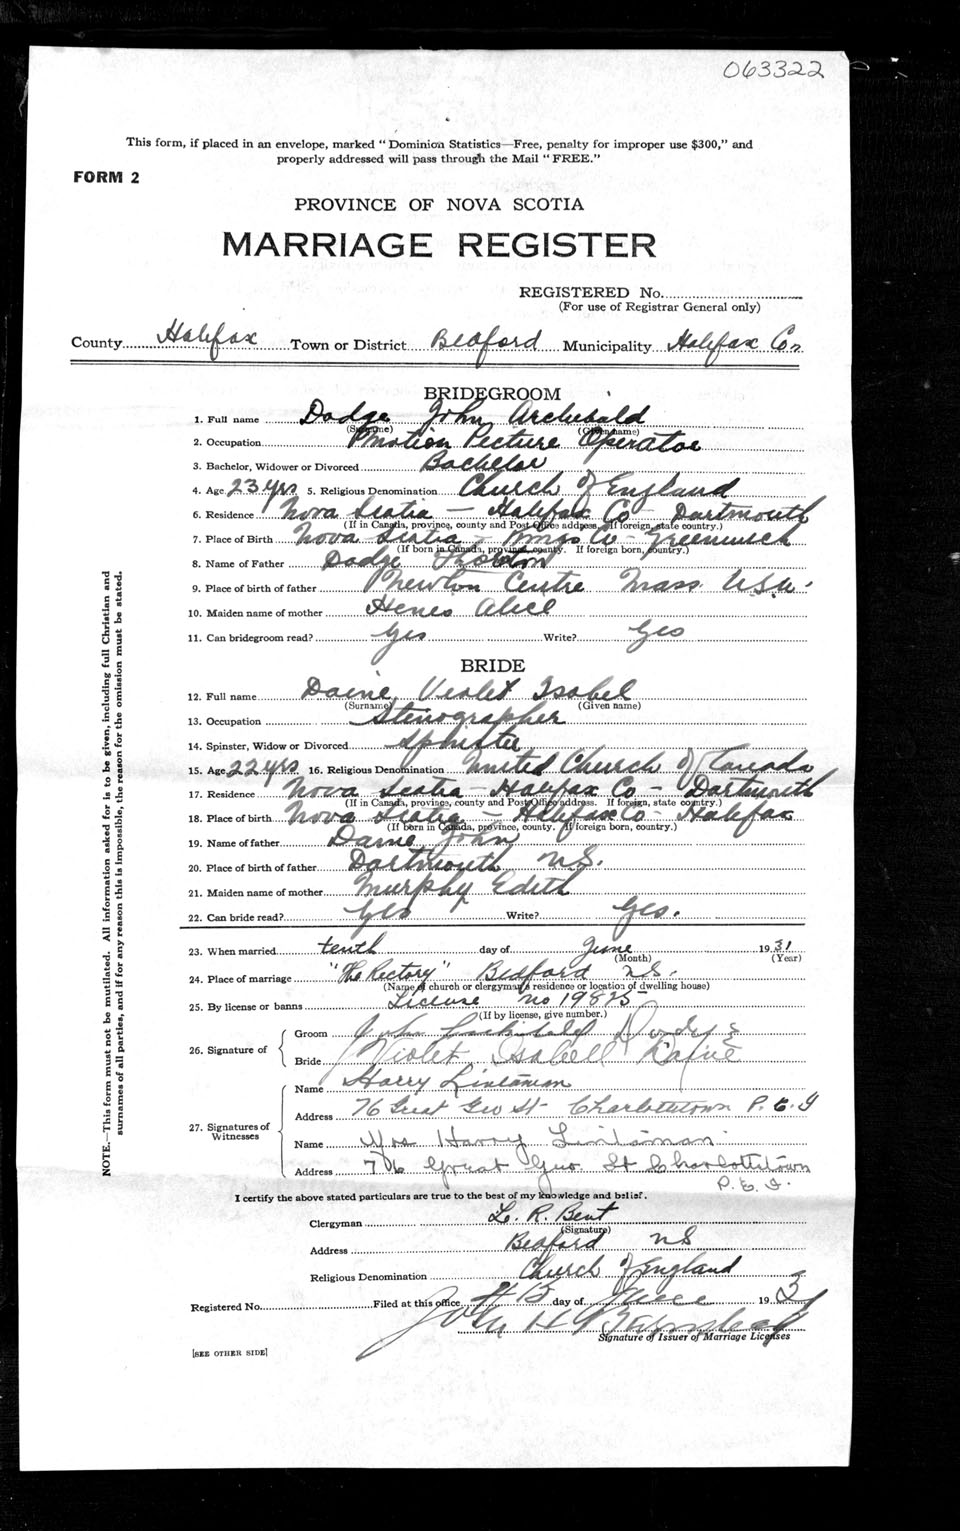 063322
This form, if placed in an envelope, marked "Dominion Statistics—Free, penalty for improper use $300," and
properly addressed will pass through the Mail "FREE."
FORM 2
PROVINCE OF NOVA SCOTIA
MARRIAGE REGISTER
REGISTERED No.
(For use of Registrar General only)
County Halifax Town or District Bedford Municipality Halifax Co.
BRIDEGROOM
1. Full name Dodge John Archibald
(Surname) (Given name)
2. Occupation Motion Picture Operator
3. Bachelor, Widower or Divorced Bachelor
4. Age 23 yrs 5. Religious Denomination Church of England
6. Residence Nova Scotia — Halifax Co — Dartmouth
(If in Canada, province, county and Post Office address. If foreign, state country.)
7. Place of Birth Nova Scotia - Kings Co - Greenwich
(If born in Canada, province, county. If foreign born, country.)
8. Name of Father Dodge
9. Place of birth of father Newton Centre Mass U.S.A.
10. Maiden name of mother Alice
11. Can bridegroom read? Yes Write? Yes
BRIDE
12. Full name Daine, Violet Isabel
(Surname) (Given name)
13. Occupation Stenographer
14. Spinster, Widow or Divorced Spinster
15. Age 22 yrs 16. Religious Denomination United Church of Canada
17. Residence Nova Scotia — Halifax Co — Dartmouth
(If in Canada, province, county and Post Office address. If foreign, state country.)
18. Place of birth Nova Scotia — Halifax Co - Halifax
(If born in Canada, province, county. If foreign born, country.)
19. Name of father Daine, John
20. Place of birth of father Dartmouth N.S.
21. Maiden name of mother Murphy Edith
22. Can bride read? Yes Write? Yes.
23. When married tenth day of June 1931
(Month) (Year)
24. Place of marriage "The Rectory" Bedford N.S.
(Name of church or clergyman's residence or location of dwelling house)
25. By license or banns License no 19825
(If by license, give number.)
26. Signature of
Groom John Archibald Dodge
Bride Violet Isabell Daine
27. Signatures of Witnesses
Name Harry Lintaman
Address 76 Great Geo St Charlottetown P.E.I
Name Mrs Harry Lintaman
Address 76 Great Geo. St Charlottetown
P.E.I.
I certify the above stated particulars are true to the best of my knowledge and belief.
Clergyman L. R. Bent
(Signature)
Address Bedford NS
Religious Denomination Church of England
Registered No. Filed at this office day of June 193
John H
Signature of Issuer of Marriage Licenses
[SEE OTHER SIDE]
NOTE.—This form must not be mutilated. All information asked for is to be given, including full Christian and
surnames of all parties, and if for any reason this is impossible, the reason for the omission must be stated.